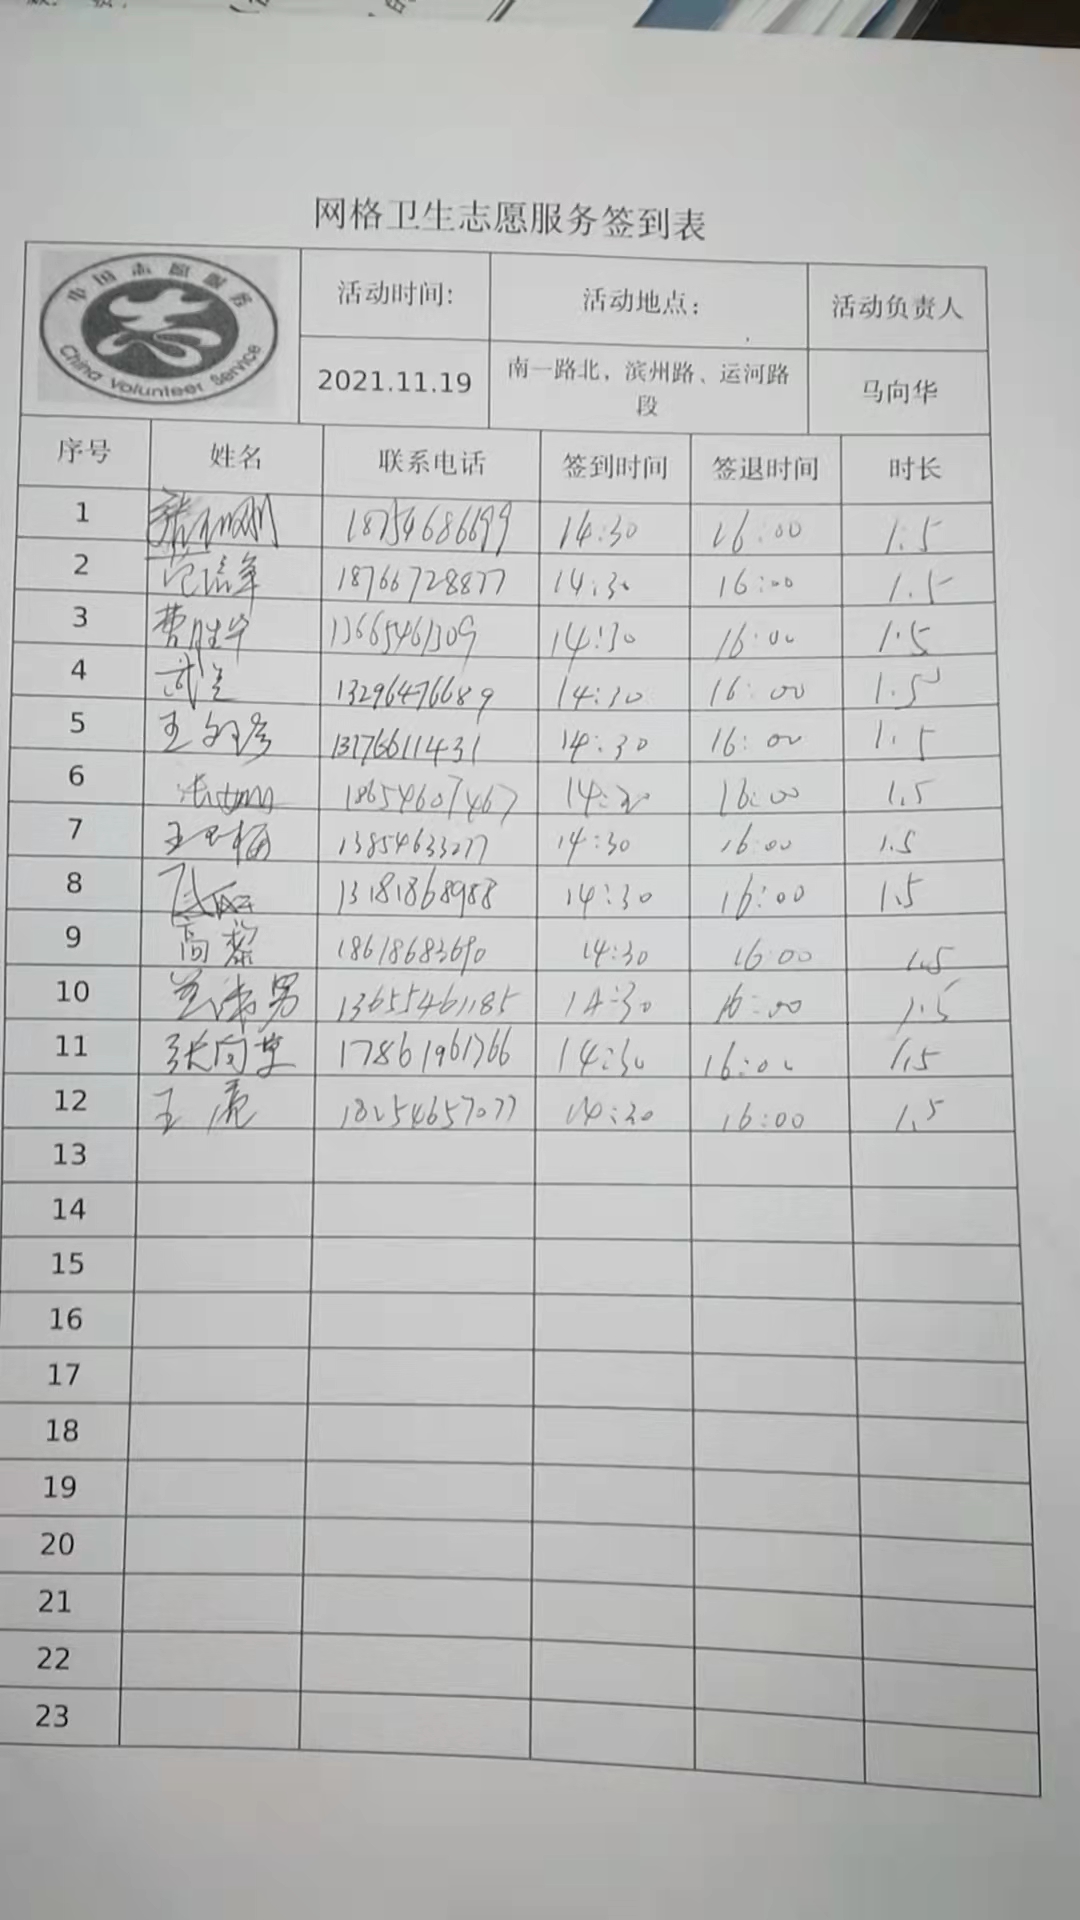 网格卫生志愿服务签到表
中国志愿服务
China Volunteer Service
活动时间: 活动地点: 活动负责人
2021.11.19 南一路北，滨州路、运河路段 马向华
序号 姓名 联系电话 签到时间 签退时间 时长
1 18754686699 14:30 16:00 1.5
2 范信军 18766728877 14:30 16:00 1.5
3 曹胜华 13665461309 14:30 16:00 1.5
4 13296476689 14:30 16:00 1.5
5 13176611431 14:30 16:00 1.5
6 18654607467 14:30 16:00 1.5
7 13854633277 14:30 16:00 1.5
8 13181868988 14:30 16:00 1.5
9 高黎 18618683690 14:30 16:00 1.5
10 13655461185 14:30 16:00 1.5
11 17861961766 14:30 16:00 1.5
12 王虎 18254657077 14:30 16:00 1.5
13
14
15
16
17
18
19
20
21
22
23